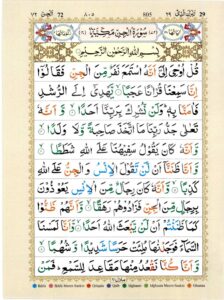 الجن ٧٢ 72 ٨٠٥ 805 تبرك الذي ٢٩ 29
سُوْرَةُ الْجِنِّ مَكِّيَّةٌ
بِسْمِ اللّٰهِ الرَّحْمٰنِ الرَّحِيْمِ
قُلْ اُوْحِيَ اِلَيَّ اَنَّهُ اسْتَمَعَ نَفَرٌ مِّنَ الْجِنِّ فَقَالُوْٓا
اِنَّا سَمِعْنَا قُرْاٰنًا عَجَبًا ۙ يَّهْدِيْٓ اِلَى الرُّشْدِ
فَاٰمَنَّا بِهٖ ؕ وَلَنْ نُّشْرِكَ بِرَبِّنَآ اَحَدًا ۙ وَّاَنَّهٗ
تَعٰلٰى جَدُّ رَبِّنَا مَا اتَّخَذَ صَاحِبَةً وَّلَا وَلَدًا ۙ
وَّاَنَّهٗ كَانَ يَقُوْلُ سَفِيْهُنَا عَلَى اللّٰهِ شَطَطًا ۙ
وَّاَنَّا ظَنَنَّآ اَنْ لَّنْ تَقُوْلَ الْاِنْسُ وَالْجِنُّ عَلَى اللّٰهِ
كَذِبًا ۙ وَّاَنَّهٗ كَانَ رِجَالٌ مِّنَ الْاِنْسِ يَعُوْذُوْنَ
بِرِجَالٍ مِّنَ الْجِنِّ فَزَادُوْهُمْ رَهَقًا ۙ وَّاَنَّهُمْ ظَنُّوْا
كَمَا ظَنَنْتُمْ اَنْ لَّنْ يَّبْعَثَ اللّٰهُ اَحَدًا ۙ وَّاَنَّا لَمَسْنَا
السَّمَآءَ فَوَجَدْنٰهَا مُلِئَتْ حَرَسًا شَدِيْدًا وَّشُهُبًا ۙ
وَّاَنَّا كُنَّا نَقْعُدُ مِنْهَا مَقَاعِدَ لِلسَّمْعِ ؕ فَمَنْ